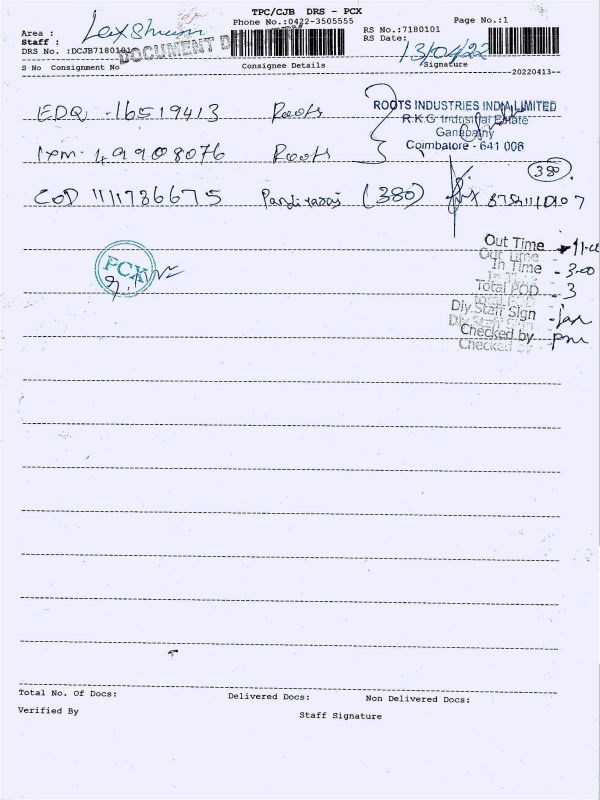 TPC/CJB DRS - PCX
Phone No.:0422-3505555
Page No.:1
Area :
Staff :
DRS No. :DCJB7180101
DOCUMENT DELIVERY
RS No.:7180101
RS Date:
13/04/22
S No Consignment No Consignee Details Signature
20220413
EDQ -16519413 Roots
ROOTS INDUSTRIES INDIA LIMITED
R.K.G Industrial Estate
Ganapathy
Coimbatore - 641 006
499908076 Roots
380
COD 1111736675 Pandiyaraj (380)
Out Time
In Time - 3.00
Total POD - 3
Dly Staff Sign
Checked by
PCX
Total No. Of Docs: Delivered Docs: Non Delivered Docs:
Verified By Staff Signature